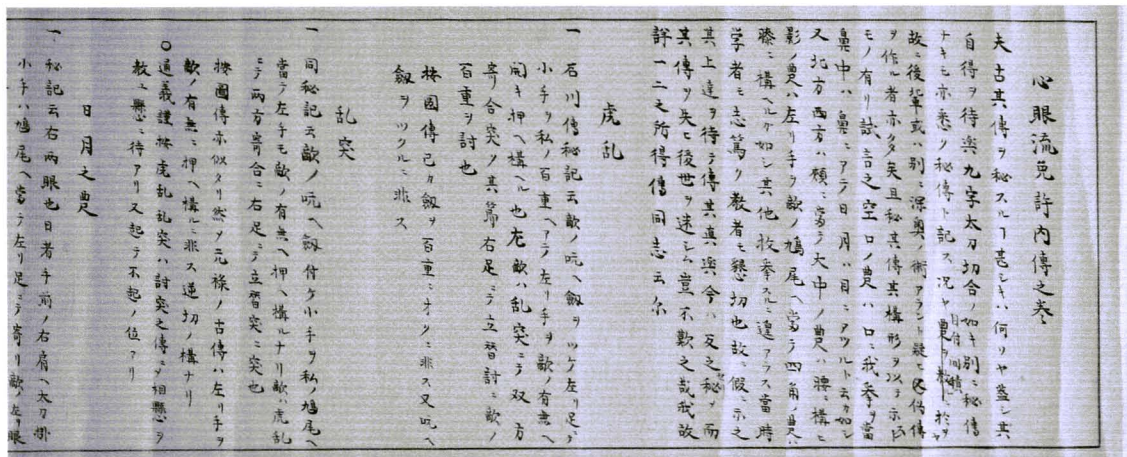 心眼流免許内傳之巻
夫古其傳ヲ秘スルヿ甚シキハ何リヤ蓋シ其
自得ヲ待与九字太刀切合ノ如キ別ニ秘傳
ナキモ亦悉ク秘傳ト記ス況ヤ
故ニ後輩或ハ別ニ深奥ノ術アラント疑ヒ又偽傳
ヲ作ル者亦多矣且秘其傳其構形ヲ以テ示
モノ有リ試ニ言之空ロノ曼ハ口ニ我拳ヲ當
鼻中ハ鼻ニアテ日月ハ目ニアツルト云カ如シ
又北方西方ハ頬ニ當テ大中ノ曼ハ腰ニ構ヒ
影ノ曼ハ左リ手ヲ敵ノ鳩尾ヘ當テ四角ノ曼ハ
膝ニ構ヘルカ如シ其他枚挙スルニ遑アラス當時
学者モ志篤ク教者モ懇切也故ニ假ニ示之
其上達ヲ待テ傳其真与今ハ反之秘シ而
其傳ヲ失ヒ後世ヲ迷シム豈不歎之哉我故
詳一二之所得傳同志云尓
虎乱
一 石川傳秘記云敵ノ吭ヘ劔ヲツケ左リ足ニテ
小手ヲ私ノ百重ヘアテ左リ手ヲ敵ノ有無ヘ
開キ押ヘ構ヘル也尤敵ハ乱突ニテ双方
寄合突ク其節右足ニテ立替討ニ敵ノ
百重ヲ討也
按圖傳己カ劔ヲ百重ニオクニ非ス又吭ヘ
劔ヲツクルニ非ス
乱突
一 同秘記云敵ノ吭ヘ劔付ケ小手ヲ私ノ鳩尾ヘ
當テ左手モ敵ノ有無ヘ押ヘ構ルナリ敵ハ虎乱
ニテ両方寄合ニ右足ニテ立替突ニ突也
按圖傳亦似タリ然ラ元禄ノ古傳ハ左リ手ヲ
敵ノ有無ニ押ヘ構ルニ非ス逆切ノ構ナリ
〇通義謹按虎乱乱突ハ討突之傳ニテ相懸ヲ
教ユ懸ニ待アリ又起テ不起ノ位アリ
日月之曼
一 秘記云右両眼也日者手前ノ右肩ヘ太刀掛
小手ハ鳩尾ヘ當テ左リ足ニテ寄リ敵ノ左リ眼